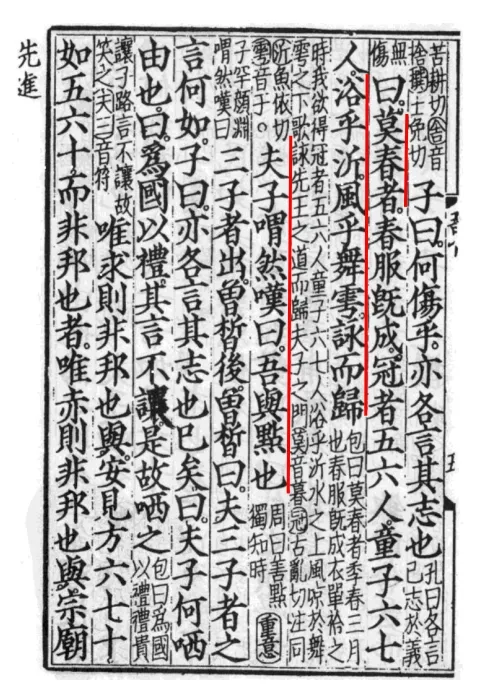 苦耕切舍音
捨撰士免切
子曰。何傷乎。亦各言其志也
孔曰各言
己志於義
無
傷
曰。莫春者。春服既成。冠者五六人。童子六七
人。浴乎沂。風乎舞雩。詠而歸
包曰莫春者季春三月
也春服既成衣單袷之
時我欲得冠者五六人童子六七人浴乎沂水之上風凉於舞
雩之下歌詠先王之道而歸夫子之門莫音暮冠古亂切注同
沂魚依切
雩音于
夫子喟然嘆曰。吾與點也
周曰善點
獨知時
重意
子罕顔淵
喟然嘆曰
三子者出。曾皙後。曾皙曰。夫三子者之
言何如。子曰。亦各言其志也已矣。曰。夫子何哂
由也。曰。爲國以禮。其言不讓。是故哂之
包曰爲國
以禮禮貴
讓子路言不讓故
笑之夫三音符
唯求則非邦也與。安見方六七十
如五六十。而非邦也者。唯赤則非邦也與。宗廟
先進